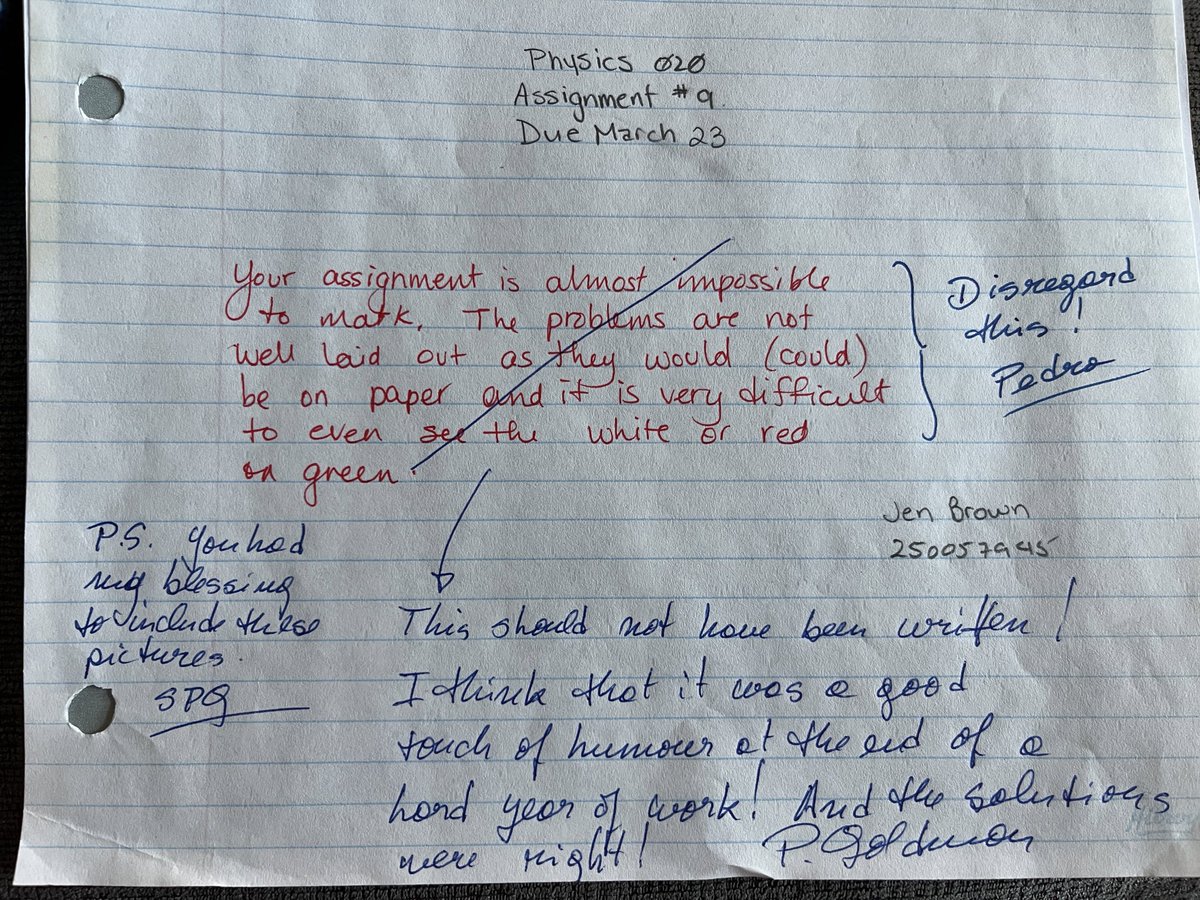 Physics 020
Assignment #9
Due March 23
Your assignment is almost impossible
to mark. The problems are not
well laid out as they would (could)
be on paper and it is very difficult
to even see the white or red
on green.
Disregard
this!
Pedro
Jen Brown
250057945
P.S. You had
my blessing
to include these
pictures.
SPG
This should not have been written!
I think that it was a good
touch of humour at the end of a
hard year of work! And the solutions
were right! P. Goldman